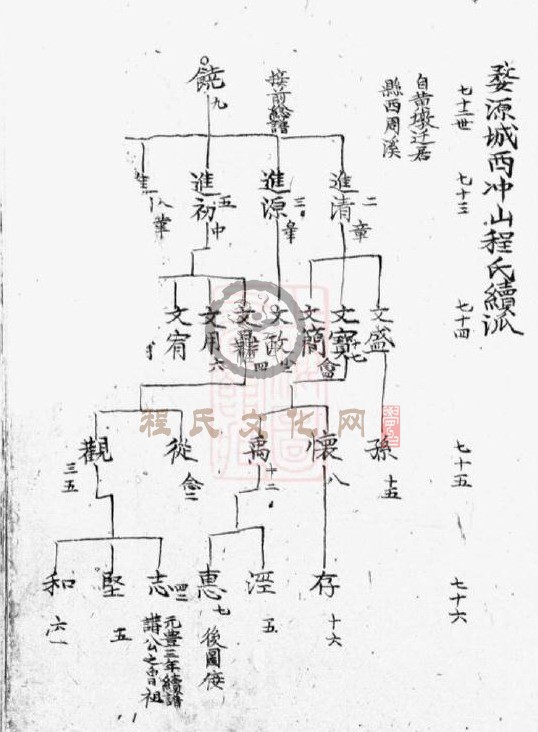 婺源城西冲山程氏續派
七十二世
七十三
七十四
七十五
七十六
自黃墩迁居
縣西周溪
接前總譜
饒
九
進清
二
章
進源
三
進初
五
冲
進
八
文盛
文寶
十七
文簡
文政
文用
六
文宥
四
孫
十五
懷
八
禹
十二
從
念二
觀
三五
存
十六
涇
五
惠
七
後圖俊
志
四二
元豐三年續譜
講公之曾祖
堅
五
和
六一
程氏文化网